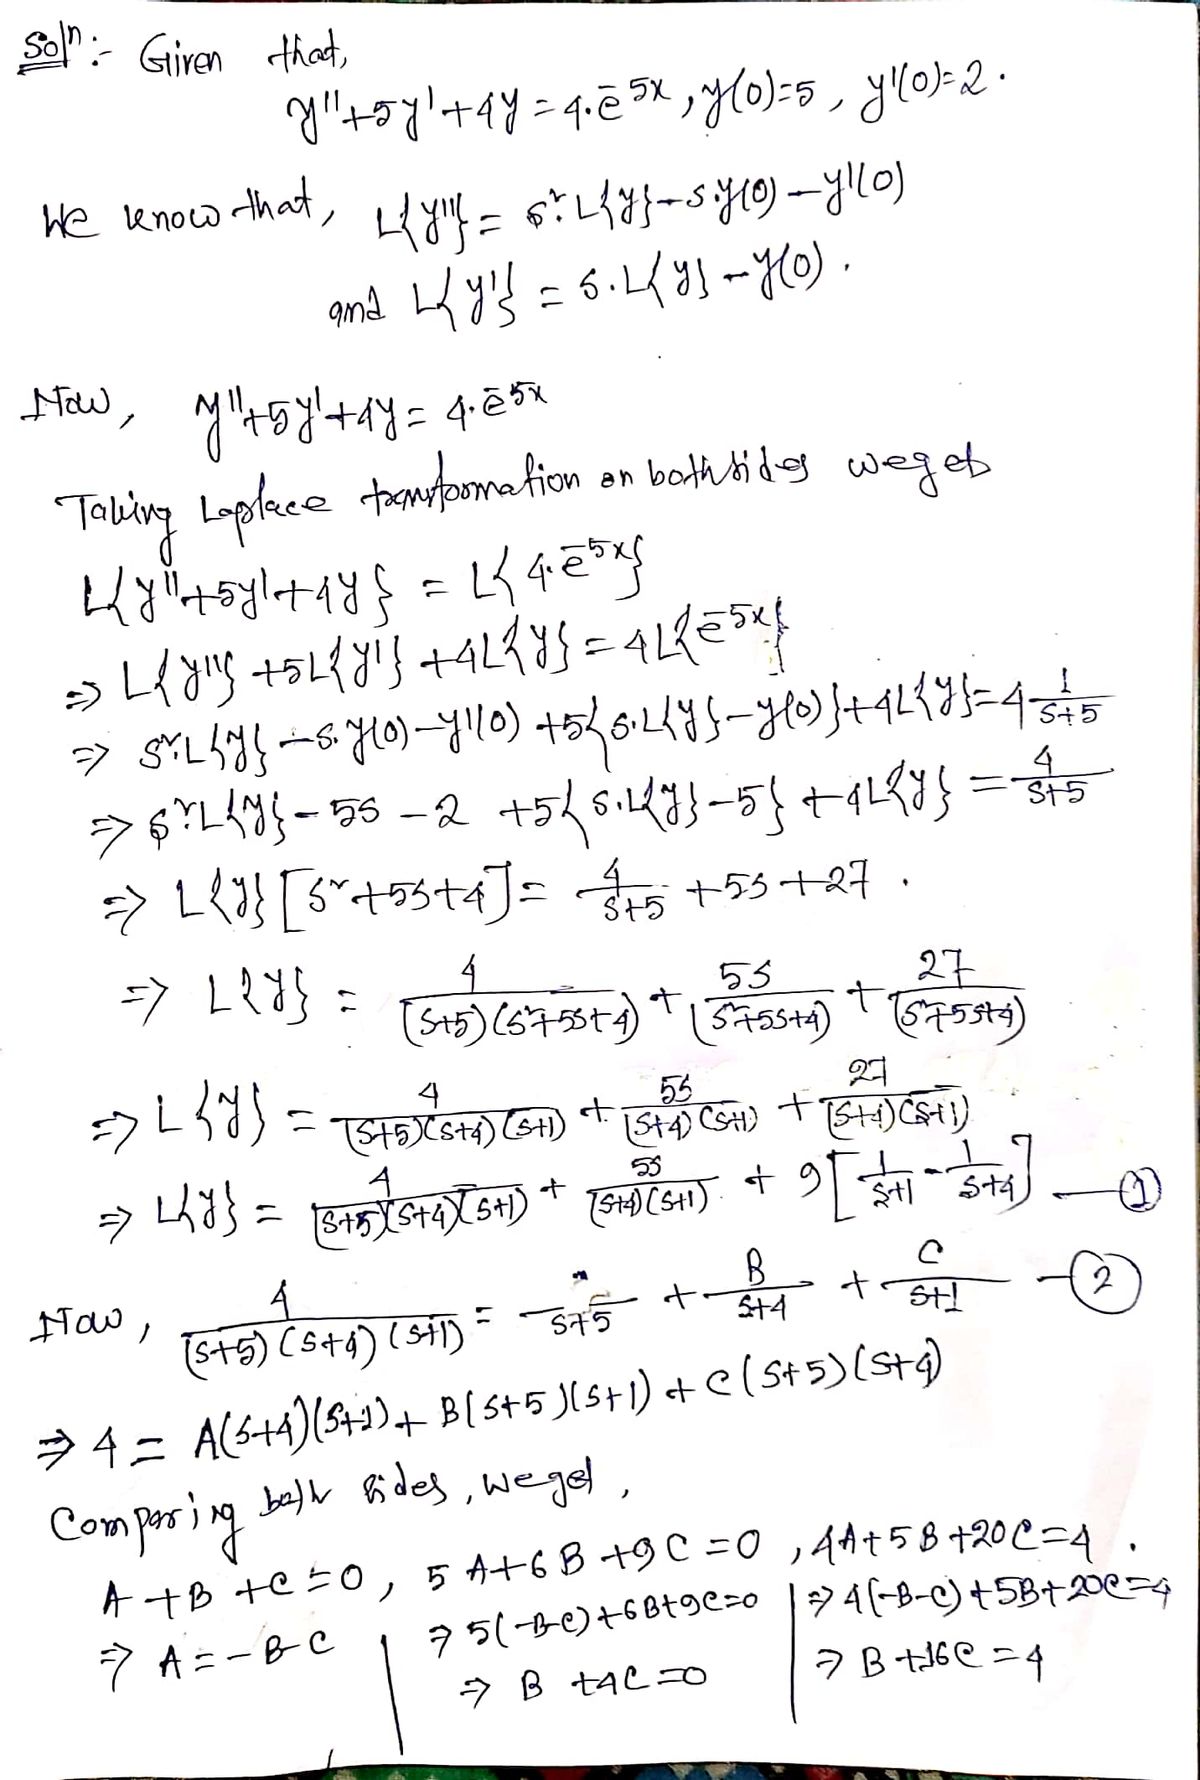 Solⁿ :- Given that,
y''+5y'+4y = 4.e̅ ⁵ˣ , y(0)=5 , y'(0)=2 .
We know that, L{y''} = s².L{y}-s.y(0)-y'(0)
and L{y'} = s.L{y} -y(0) .
Now, y''+5y'+4y = 4.e̅ ⁵ˣ
Taking Laplace transformation on both sides we get
L{y''+5y'+4y} = L{4.e̅ ⁵ˣ}
=> L{y''} +5L{y'} +4L{y} = 4L{e̅ ⁵ˣ}
=> s².L{y} -s.y(0)-y'(0) +5{s.L{y}-y(0)}+4L{y}=4 1/(s+5)
=> s².L{y}-5s -2 +5{s.L{y}-5} +4L{y} = 4/(s+5)
=> L{y} [s²+5s+4] = 4/(s+5) +5s+27 .
=> L{y} = 4/((s+5)(s²+5s+4)) + 5s/(s²+5s+4) + 27/(s²+5s+4)
=> L{y} = 4/((s+5)(s+4)(s+1)) + 5s/((s+4)(s+1)) + 27/((s+4)(s+1))
=> L{y} = 4/((s+5)(s+4)(s+1)) + 5s/((s+4)(s+1)) + 9[1/(s+1) - 1/(s+4)] —①
Now, 4/((s+5)(s+4)(s+1)) = /(s+5) + B/(s+4) + C/(s+1) —②
=> 4 = A(s+4)(s+1)+ B(s+5)(s+1)+C(s+5)(s+4)
Comparing both sides, we get,
A+B+C=0, 5A+6B+9C=0 , 4A+5B+20C=4 .
=> A=-B-C | => 5(-B-C)+6B+9C=0 | => 4(-B-C)+5B+20C=4
=> B+4C=0 | => B+16C=4